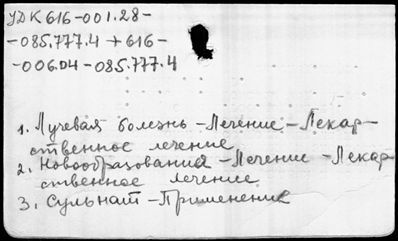 УДК 616-001.28-
-085.777.4 + 616-
-006.04-085.777.4
1. Лучевая болезнь - Лечение - Лекар-
ственное лечение
2. Новообразования - Лечение - Лекар-
ственное лечение.
3. Сульнат - Применение